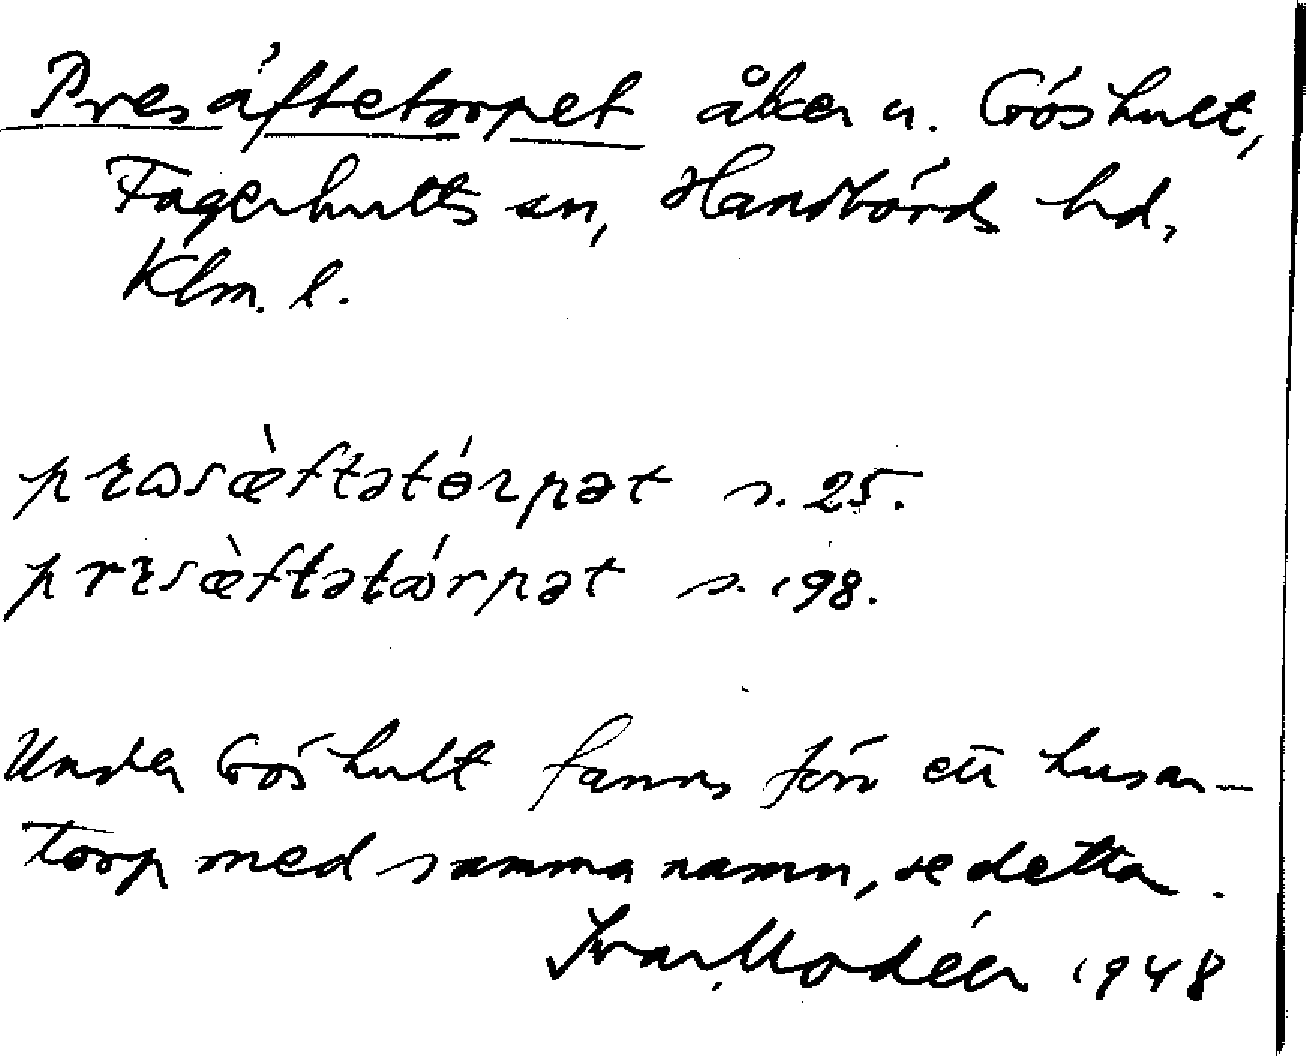 Presäftetorpet åker u. Göshult,
Fagerhults sn, Handbörds hd,
Klm. l.
prɷsæ̀ftətɵ́rpət s. 25.
prɛsæ̀ftətɷ́rpət s. 198.
Under Göshult fanns förr ett husar-
torp med samma namn, se detta.
Ivar Modéer 1948